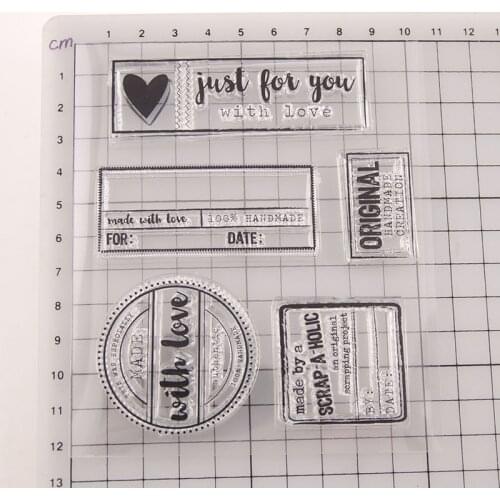 cm
1 2 3 4 5 6 7 8 9 10 11
1
2
3
4
5
6
7
8
9
10
11
12
13
just for you
with love
made with love
100% HANDMADE
FOR:
DATE:
ORIGINAL
HANDMADE
CREATION
MADE
with love
100% HANDMADE
made by a
SCRAP-A-HOLIC
an original
scrapping project
BY:
DATE: